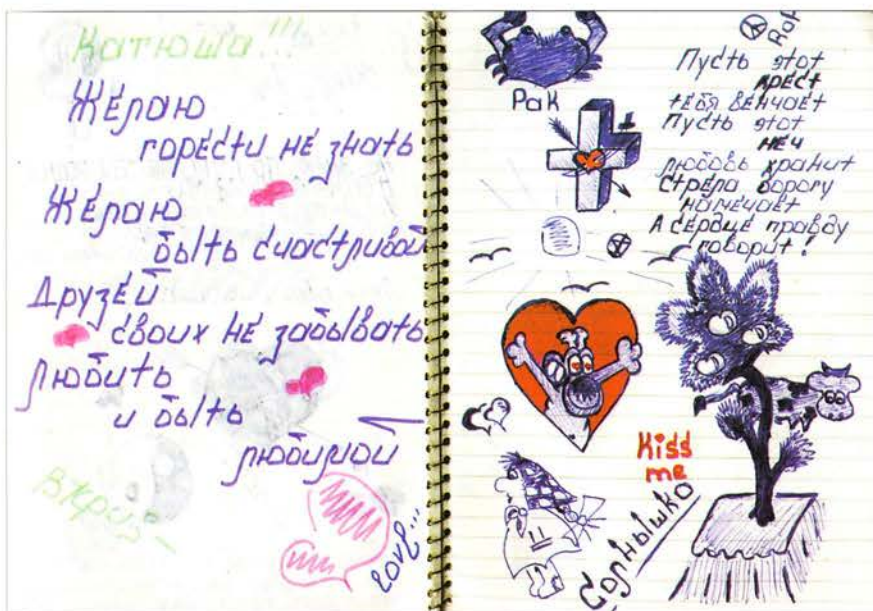 Катюша!!!
Желаю
горести не знать
Желаю
быть счастливой
Друзей
своих не забывать
Любить
и быть
любимой
love...
Рак
Пусть этот
крест
тебя венчает
Пусть этот
меч
любовь хранит
Стрела дорогу
намечает
А сердце правду
говорит!
Kiss
me
Солнышко